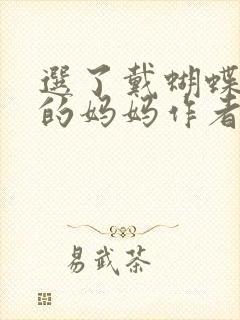 選了戴蝴蝶
的妈妈作者
易武茶